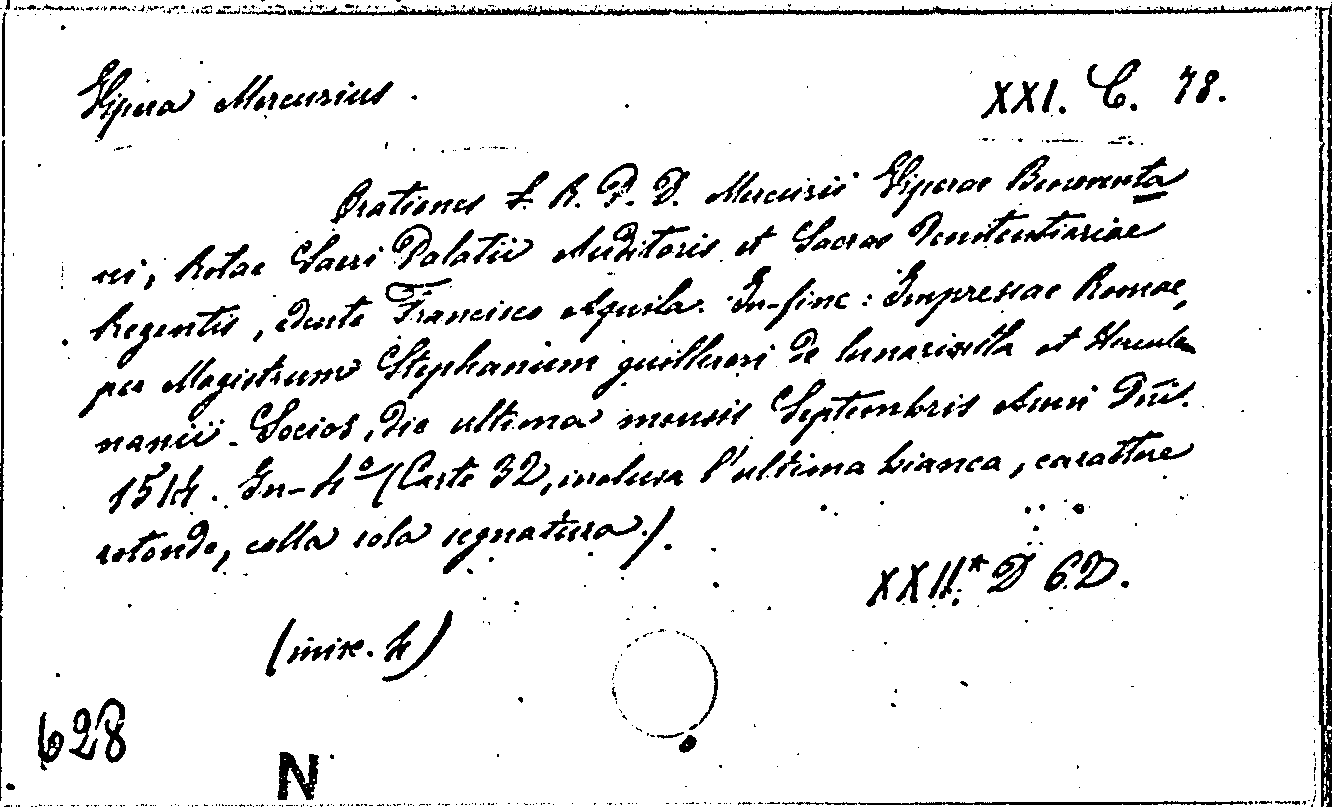 Vipera Mercurius. XXI. C. 78.
Orationes F. R. P. D. Mercurii Viperae Beneventa
ni, Rotae Sacri Palatii Auditoris et Sacrae Penitentiariae
Regentis, edente Francisco Aquila. In-fine: Impressae Romae,
per Magistrum Stephanum guillereri de lunarivilla et Hercule
nanii Socios, die ultima mensis Septembris Anni Dñi.
1514. In-4º (Carte 32, inclusa l'ultima bianca, carattere
rotondo, colla sola segnatura.).
XXII.* D 62.
(misc. 4)
628
N